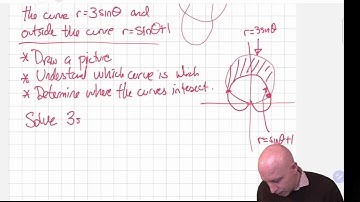 the curve r=3sinθ and
outside the curve r=sinθ+1
* Draw a picture
* Understand which curve is which
* Determine where the curves intesect.
Solve 3s
r=3sinθ
r=sinθ+1